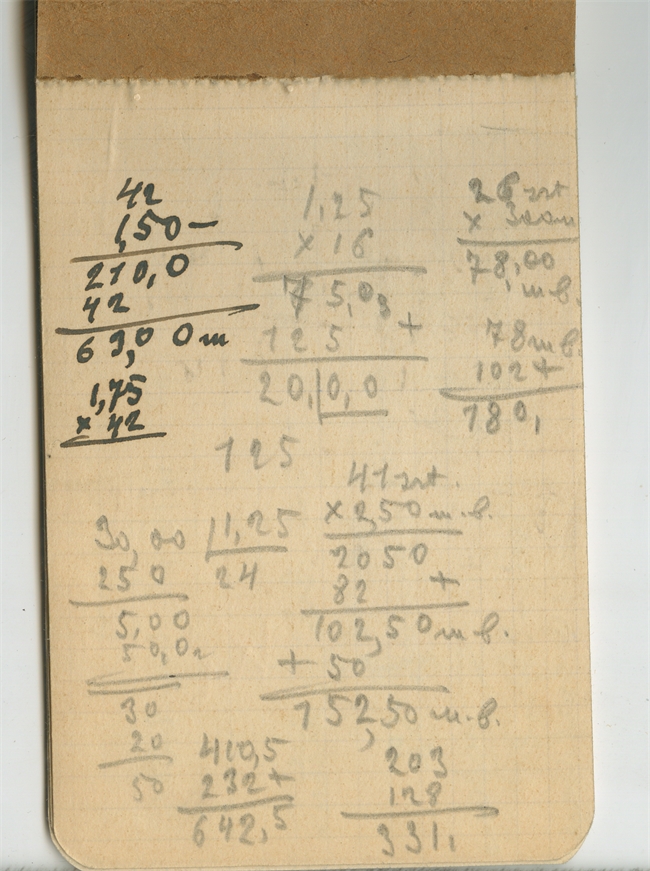 42
1,50 —
210,0
42
63,00 m
1,75
× 42
1,25
× 16
75,0
125 +
20,0,0
26 szt
× 300 m
78,00
m.b.
78 m b.
102 +
180,
125
30,00 | 1,25
250 24
5,00
50,0
30
20
50
41 szt.
× 2,50 m.b.
2050
82 +
102,50 m b.
+ 50
152,50 m.b.
410,5
232 +
642,5
203
128
331,